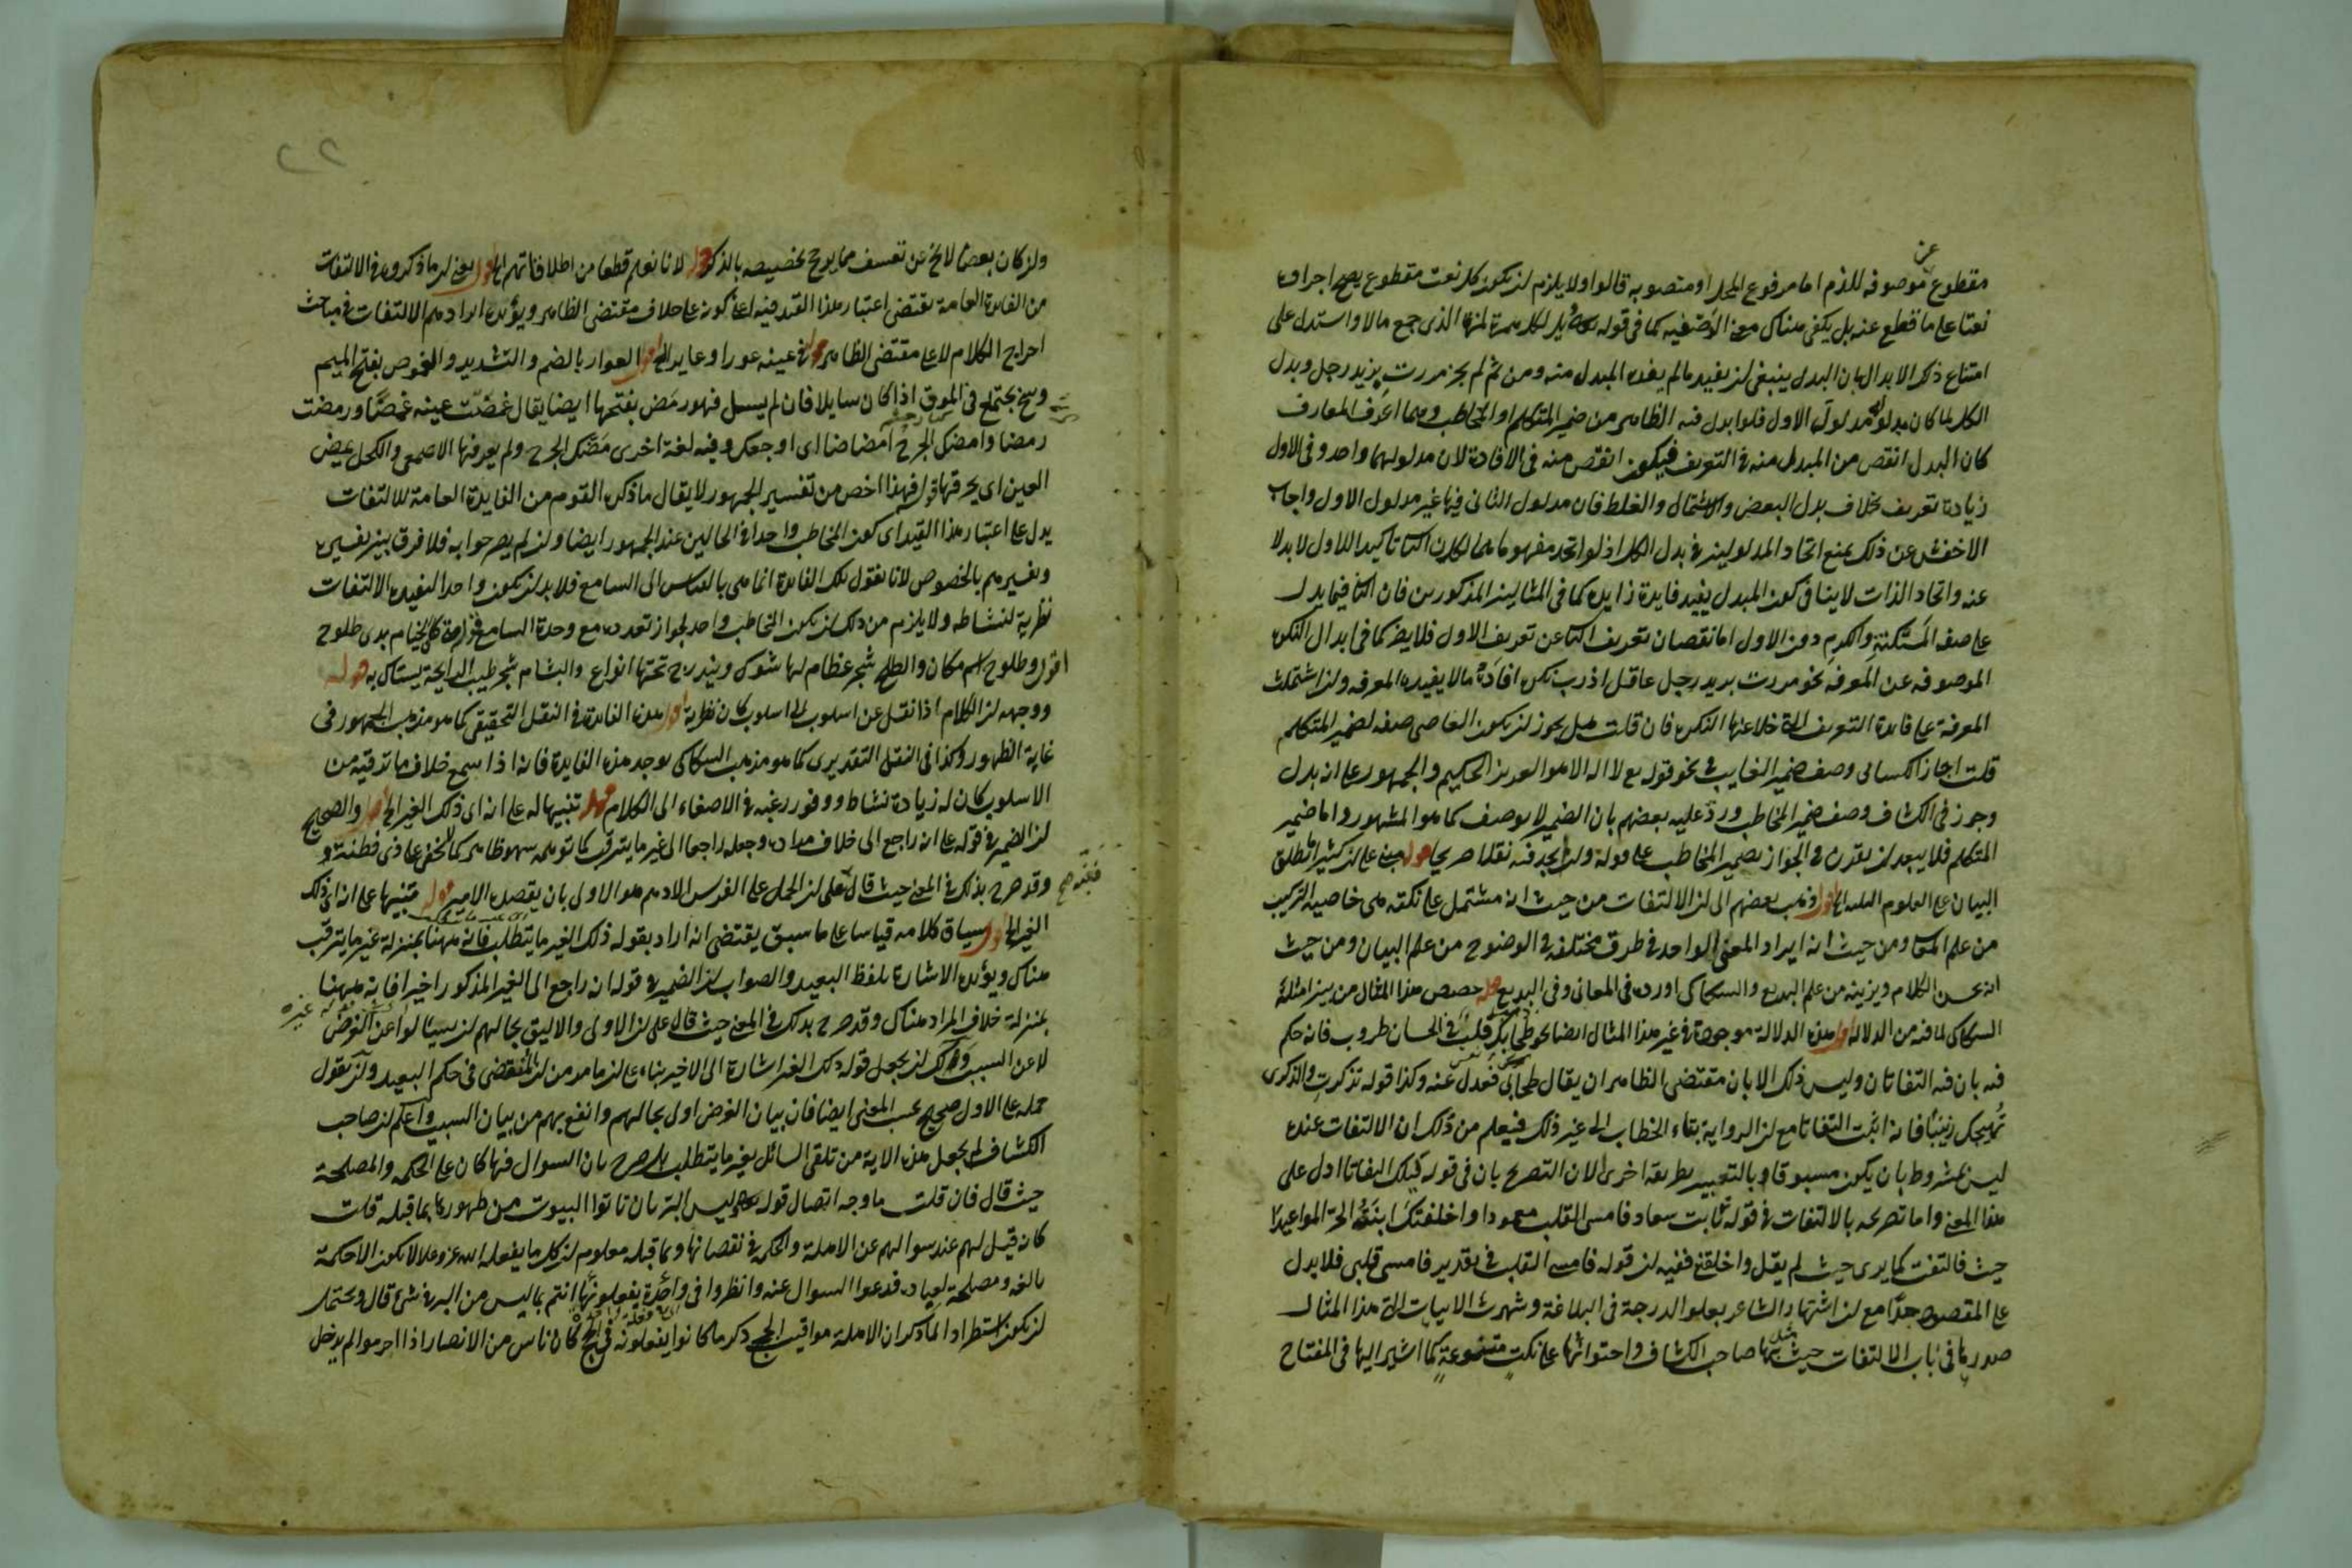 مقطوع عن موصوفه للذم اما مرفوع المحل او منصوبه قالوا ولا يلزم ان يكون كل نعت مقطوع يصح اجراؤه
نعتا على ما قطع عنه بل يكفى هناك معنى الوصفيه كما فى قوله تع ويل لكل همزة لمزة الذى جمع مالا واستدل على
امتناع ذلك الابدال بان البدل ينبغى ان يفيد ما لم يفده المبدل منه ومن ثم لم يجز مررت بزيد رجل وبدل
الكل لما كان مدلوله مدلول الاول فلو ابدل فيه الظاهر من ضمير المتكلم او المخاطب وهما اعرف المعارف
كان البدل انقص من المبدل منه فى التعريف فيكون انقص منه فى الافادة لان مدلولهما واحد وفى الاول
زيادة تعريف بخلاف بدل البعض والاشتمال والغلط فان مدلول الثانى فيها غير مدلول الاول واجاب
الاخفش عن ذلك بمنع اتحاد المدلولين فى بدل الكل اذ لو اتحد مفهوماهما لكان الثانى تاكيدا للاول لا بدلا
عنه واتحاد الذات لا ينافى كون المبدل يفيد فايدة زايدة كما فى المثالين المذكورين فان الثانى فيهما يدل
على صفة المسكنة والكرم دون الاول اما نقصان تعريف الثانى عن تعريف الاول فلا يضر كما فى ابدال النكرة
الموصوفه عن المعرفه نحو مررت بزيد رجل عاقل اذ رب نكرة افادت ما لا يفيده المعرفه وان اشتملت
المعرفة على فائدة التعريف التى خلا عنها النكرة فان قلت هل يجوز ان يكون العاصى صفه لضمير المتكلم
قلت اجاز الكسائى وصف ضمير الغايب فى نحو قوله تع لا اله الا هو العزيز الحكيم والجمهور على انه بدل
وجوز فى الكشاف وصف ضمير المخاطب ورد عليه بعضهم بان الضمير لا يوصف كما هو المشهور واما ضمير
المتكلم فلا يبعد ان يقرن فى الجواز بضمير المخاطب على قوله وان لم نجد فيه نقلا صريحا قوله مبنى على ان كثيرا يطلق
البيان على العلوم الثلثه الخ اقول ذهب بعضهم الى ان الالتفات من حيث انه مشتمل على نكته هى خاصية التركيب
من علم المعانى ومن حيث انه ايراد المعنى الواحد فى طرق مختلفه فى الوضوح من علم البيان ومن حيث
انه يحسن الكلام ويزينه من علم البديع والسكاكى اورده فى المعانى وفى البديع قوله خصص هذا المثال من بين امثلة
السكاكى لما فيه من الدلاله اقول هذه الدلالة موجودة فى غير هذا المثال ايضا نحو طحا بك قلب فى الحسان طروب فانه حكم
فيه بان فيه التفاتان وليس ذلك الا بان مقتضى الظاهر ان يقال طحا بى فعدل عنه وكذا قوله تذكرت والذكرى
تهيجك زينبا فانه اثبت التفاتا مع ان الرواية بتاء الخطاب الى غير ذلك فيعلم من ذلك ان الالتفات عنده
ليس بمشروط بان يكون مسبوقا بالتعبير بطريقة اخرى الا ان التصريح بان فى قوله ليلك التفاتا ادل على
هذا المعنى واما تصريحه بالالتفات فى قوله بانت سعاد فامسى القلب معمودا واخلفتك ابنة الحر المواعيدا
حيث فالتفت كما يرى حيث لم يقل واخلفتنى ففيه ان قوله فامسى القلب فى تقدير فامسى قلبى فلا يدل
على المقصود جدا مع ان اشتهار الشاعر بعلو الدرجة فى البلاغة وشهرت الابيات التى هذا المثال
صدرها فى باب الالتفات حيث مثل بها صاحب الكشاف واحتوائها على نكت متنوعة كما اشير اليها فى المفتاح
٢٢
وان كان بعضها لا يخ عن تعسف مما يرجح تخصيصه بالذكر قوله لانا نعلم قطعا من اطلاقاتهم الخ اقول يعنى ان ما ذكروه فى الالتفات
من الفائدة العامة يقتضى اعتبار هذا القيد فيه اعنى كونه على خلاف مقتضى الظاهر ويؤيده ايرادهم الالتفات فى مباحث
اخراج الكلام لا على مقتضى الظاهر قوله فى عينه عوار او عاير الخ اقول العوار بالضم والتشديد والغموص بفتح الميم
وسخ يجتمع فى الموق اذا كان سايلا فان لم يسل فهو رمض بفتحها ايضا يقال غمضت عينه غمصا ورمضت
رمضا وامضنى الجرح امضاضا اى اوجعك وفيه لغة اخرى مضك الجرح ولم يعرفها الاصمعى والكحل يمض
العين اى يحرقها قوله فهذا اخص من تفسير الجمهور لا يقال ما ذكره القوم من الفايدة العامة للالتفات
يدل على اعتبار هذا القيد اى كون المخاطب واحدا فى الحالين عند الجمهور ايضا وان لم يصرحوا به فلا فرق بين تفسيره
وتفسيرهم بالخصوص لانا نقول تلك الفائدة انما هى بالقياس الى السامع فلا بد ان يكون واحدا ليفيده الالتفات
تطرية لنشاطه ولا يلزم من ذلك ان يكون المخاطب واحد لجواز تعدده مع وحدة السامع قوله متى كان الخيام بذى طلوح
اقول ذو طلوح اسم مكان والطلح شجر عظام لها شوك ويندرج تحتها انواع والبشام شجر طيب الرايحة يستاك به قوله
ووجهه ان الكلام اذا نقل عن اسلوب الى اسلوب كان تطرية اقول هذه الفائدة فى النقل التحقيقى كما هو مذهب الجمهور فى
غاية الظهور وكذا فى النقل التقديرى كما هو مذهب السكاكى يوجد هذه الفايدة فانه اذا سمع خلاف ما ترقبه من
الاسلوب كان له زيادة نشاط ووفور رغبه فى الاصغاء الى الكلام قوله تنبيها له على انه اى ذلك الغير الخ اقول والصحيح
ان الضمير فى قوله على انه راجع الى خلاف مراده وجعله راجعا الى غير ما يترقب كما توهمه سهو ظاهر كما لا يخفى على ذى فطنة
وقد صرح بذلك فى المعنى حيث قال على ان الحمل على الفرس الادهم هو الاولى بان يقصده الامير قوله تنبيها على انه اى ذلك
الغير الخ اقول سياق كلامه قياسا على ما سبق يقتضى انه اراد بقوله ذلك الغير ما يتطلب فانه ههنا بمنزلة غير ما يترقب
هناك ويؤيده الاشارة بلفظ البعيد والصواب ان الضمير فى قوله انه راجع الى الغير المذكور اخيرا فانه ههنا
بمنزلة خلاف المراد هناك وقد صرح بذلك فى المعنى حيث قال على ان الاولى والاليق بحالهم ان يسالوا عن الغرض
لا عن السبب ولك ان يجعل قوله ذلك الغير اشارة الى الاخير بناء على ما مر من ان المنقضى فى حكم البعيد وان تقول
حمله على الاول صحيح بحسب المعنى ايضا فان بيان الغرض اولى بحالهم وانفع بهم من بيان السبب واعلم ان صاحب
الكشاف لم يجعل هذه الاية من تلقى السائل بغير ما يتطلب بل صرح بان السوال فيها كان على الحكمه والمصلحة
حيث قال فان قلت ما وجه اتصال قوله تع وليس البر بان تاتوا البيوت من ظهورها بما قبله قلت
كانه قيل لهم عند سوالهم عن الاهلة والحكمة فى نقصانها وتمامها معلوم ان كل ما يفعله الله عز وعلا لا يكون الا حكمة
بالغه ومصلحة لعباده فدعوا السوال عنه وانظروا فى واحدة يفعلونها انتم مما ليس من البر فى شئ قال ويحتمل
ان يكون استطرادا لما ذكر ان الاهلة مواقيت الحج ذكر ما كانوا يفعلونه فى الحج كان ناس من الانصار اذا احرموا لم يدخل